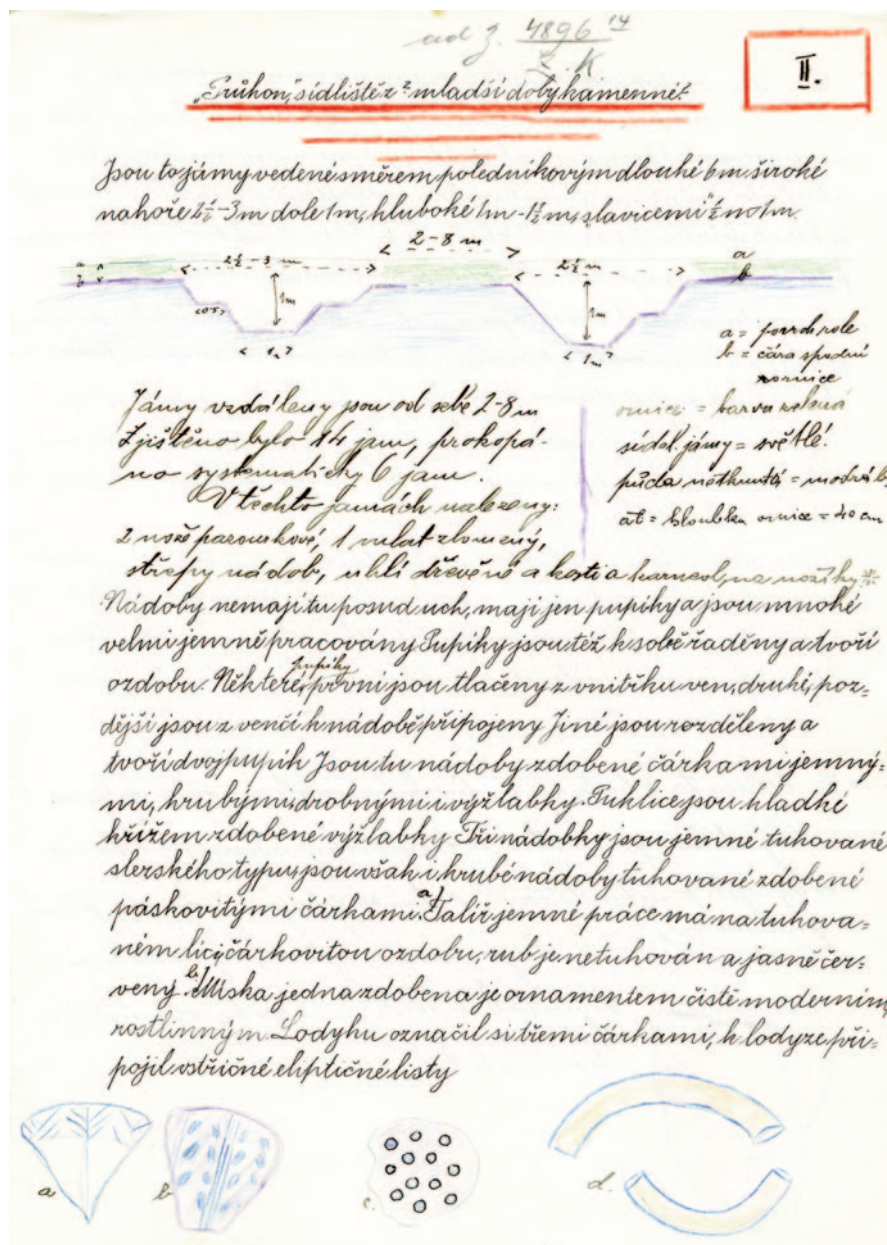 ad z. 4896/14
Z. K
II.
„Průhon," sídliště z ? mladší doby kamenné ?
Jsou to jámy vedené směrem poledníkovým dlouhé 6 m, široké
nahoře 2½-3 m dole 1 m, hluboké 1 m - 1½ m, „s lavicemi" ½ no 1 m.
2-8 m
2½-3 m
2½ m
a
b
a
b
1 m
1 m
0·5
1 m
1 m
a = povrch role
b = čára spodní
ornice
Jámy vzdáleny jsou od sebe 2-8 m
Zjištěno bylo 14 jam, prokopá-
no systematicky 6 jam.
V těchto jamách nalezeny:
2 nože pazourkové, 1 mlat zlomený,
střepy nádob, uhlí dřevěné a kosti a karneol, na nožíky
ornice = barva zelená
sídel. jámy = světlé!
půda netknutá = modrá b.
ab = hloubka ornice = 40 cm
Nádoby nemají tu posud uch, mají jen pupíky a jsou mnohé
velmi jemně pracovány. Pupíky jsou též k sobě řaděny a tvoří
ozdobu. Některé pupíky, první jsou tlačeny z vnitřku ven, druhé, poz=
dější jsou z venčí k nádobě připojeny. Jiné jsou rozděleny a
tvoří dvojpupík. Jsou tu nádoby zdobené čárkami jemný=
mi, hrubými, drobnými i výžlabky. Puklice jsou hladké
křížem zdobené výžlabky. Tři nádobky jsou jemné tuhované
slezského typu, jsou však i hrubé nádoby tuhované zdobené
páskovitými čárkami. a) Talíř jemné práce má na tuhova=
ném líci čárkovitou ozdobu, rub je netuhován a jasně čer=
vený. b) Miska jedna zdobena je ornamentem čistě moderním,
rostlinným. Lodyhu označil si třemi čárkami, k lodyze při=
pojil vstřičné eliptičné listy
a
b
c.
d.